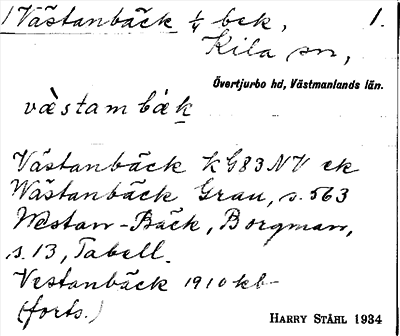 1 Västanbäck 1/4 bck, 1.
Kila sn,
Övertjurbo hd, Västmanlands län.
væ̀stambækͅ
Västanbäck KG83NV ek
Wästanbäck Grau, s. 563
Westan-Bäck, Borgman,
s. 13, Tabell.
Vestanbäck 1910 kb
(forts.)
HARRY STÅHL 1934